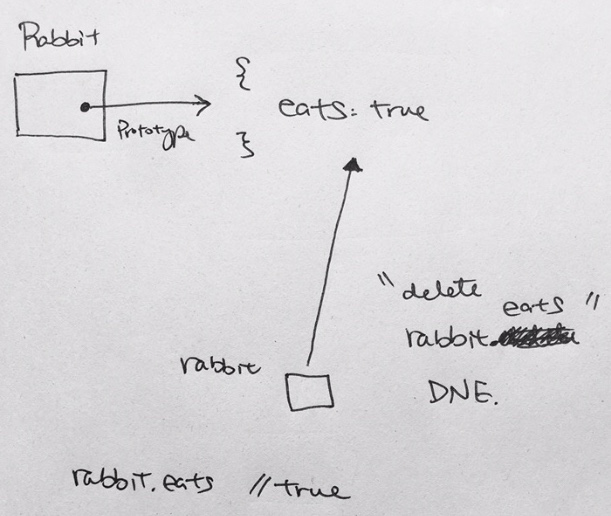 Rabbit
{
eats: true
Prototype
}
"delete
eats"
rabbit.
rabbit
DNE.
rabbit.eats //true